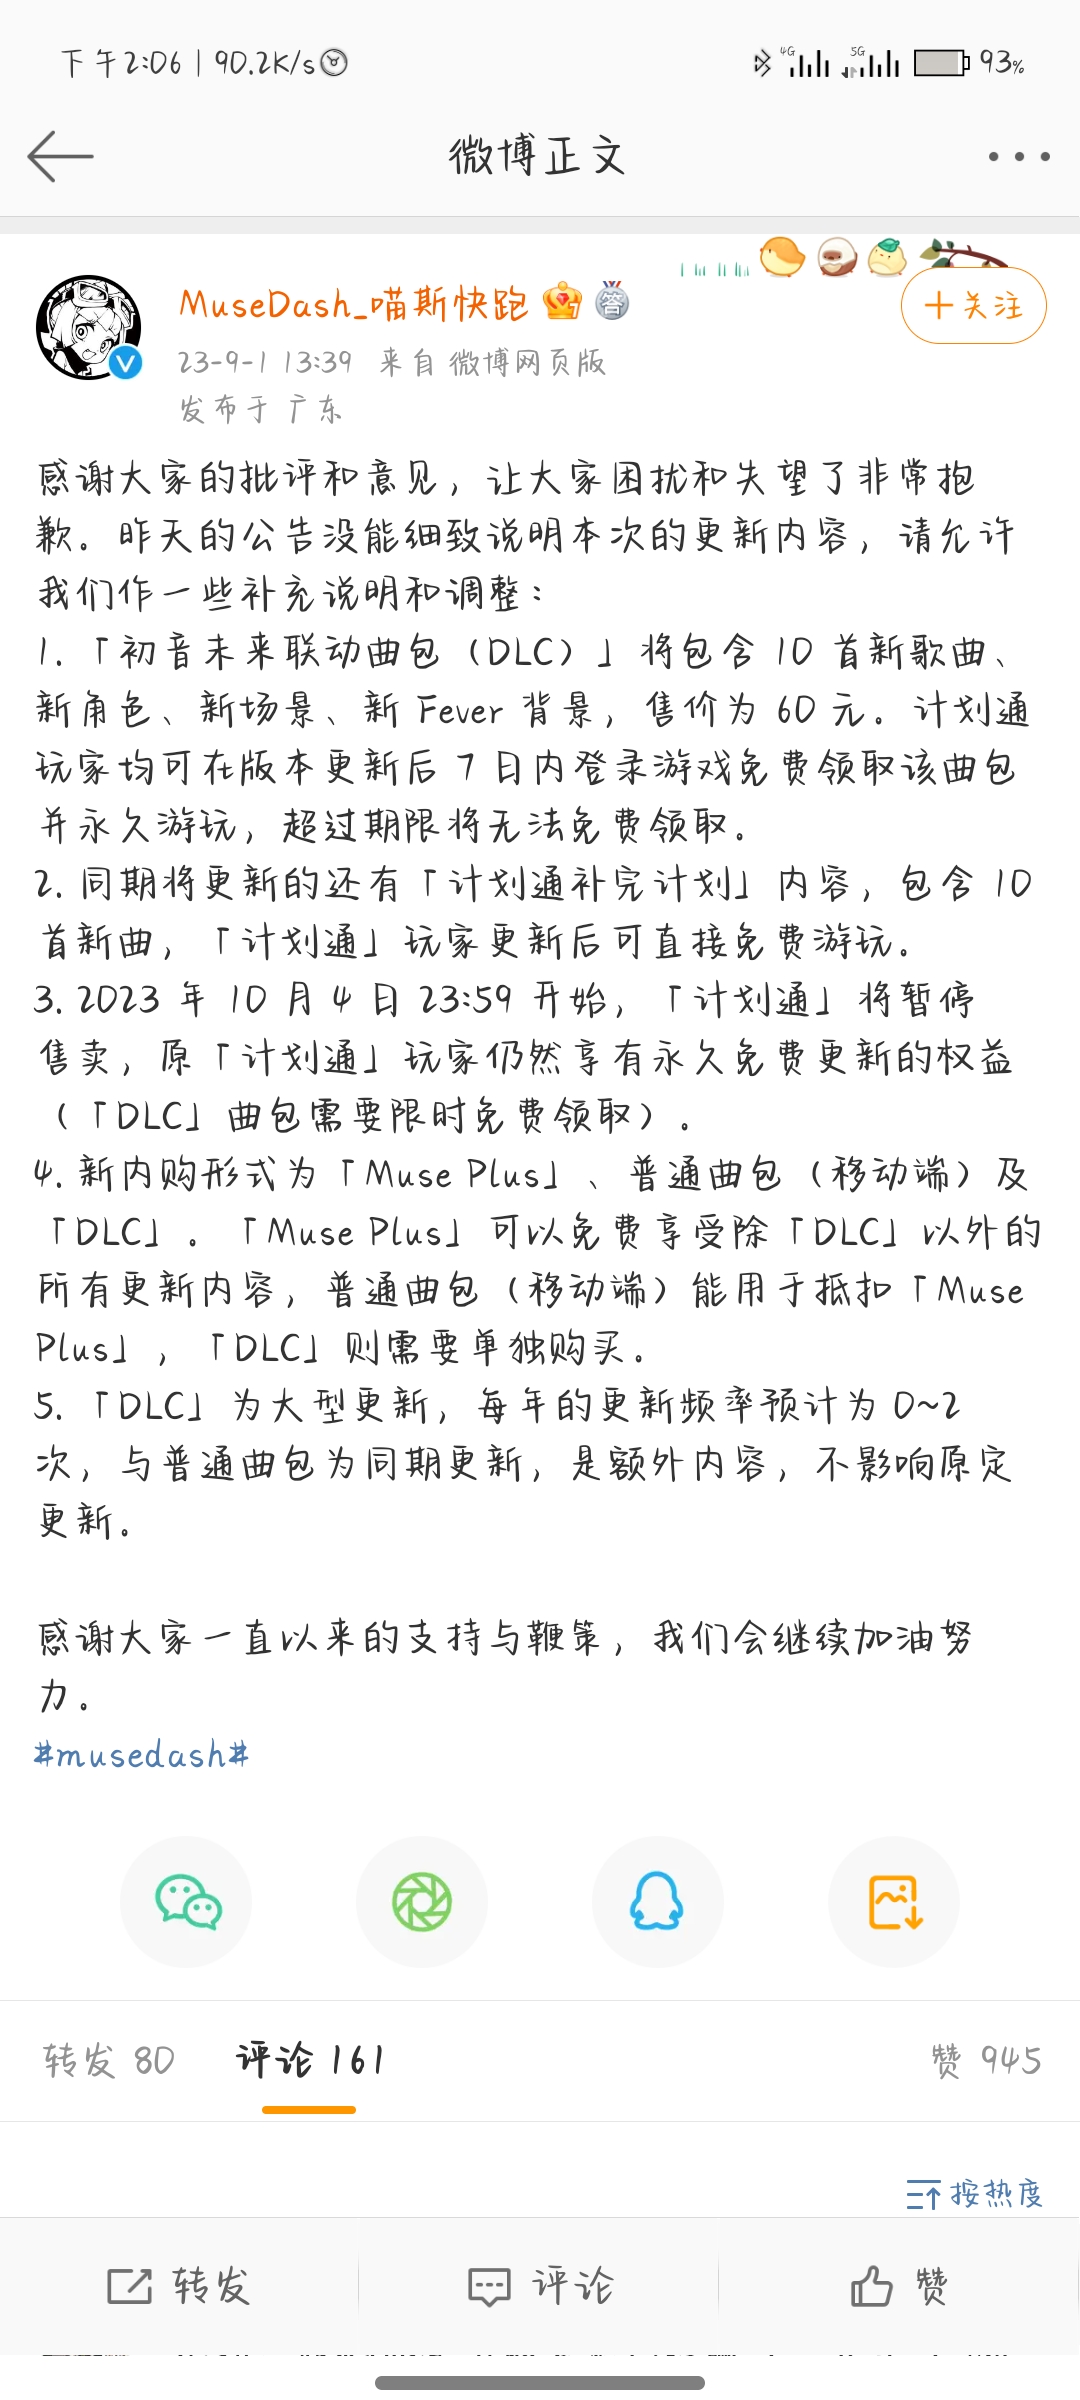 下午2:06 | 90.2K/s
4G 5G 93%
微博正文
MuseDash_喵斯快跑 答
+关注
23-9-1 13:39 来自 微博网页版
发布于 广东
感谢大家的批评和意见，让大家困扰和失望了非常抱
歉。昨天的公告没能细致说明本次的更新内容，请允许
我们作一些补充说明和调整：
1.「初音未来联动曲包（DLC）」将包含 10 首新歌曲、
新角色、新场景、新 Fever 背景，售价为 60 元。计划通
玩家均可在版本更新后 7 日内登录游戏免费领取该曲包
并永久游玩，超过期限将无法免费领取。
2. 同期将更新的还有「计划通补完计划」内容，包含 10
首新曲，「计划通」玩家更新后可直接免费游玩。
3. 2023 年 10 月 4 日 23:59 开始，「计划通」将暂停
售卖，原「计划通」玩家仍然享有永久免费更新的权益
（「DLC」曲包需要限时免费领取）.
4. 新内购形式为「Muse Plus」、普通曲包（移动端）及
「DLC」. 「Muse Plus」可以免费享受除「DLC」以外的
所有更新内容，普通曲包（移动端）能用于抵扣「Muse
Plus」，「DLC」则需要单独购买.
5.「DLC」为大型更新，每年的更新频率预计为 0~2
次，与普通曲包为同期更新，是额外内容，不影响原定
更新。
感谢大家一直以来的支持与鞭策，我们会继续加油努
力。
#musedash#
转发 80 评论 161 赞 945
按热度
转发 评论 赞